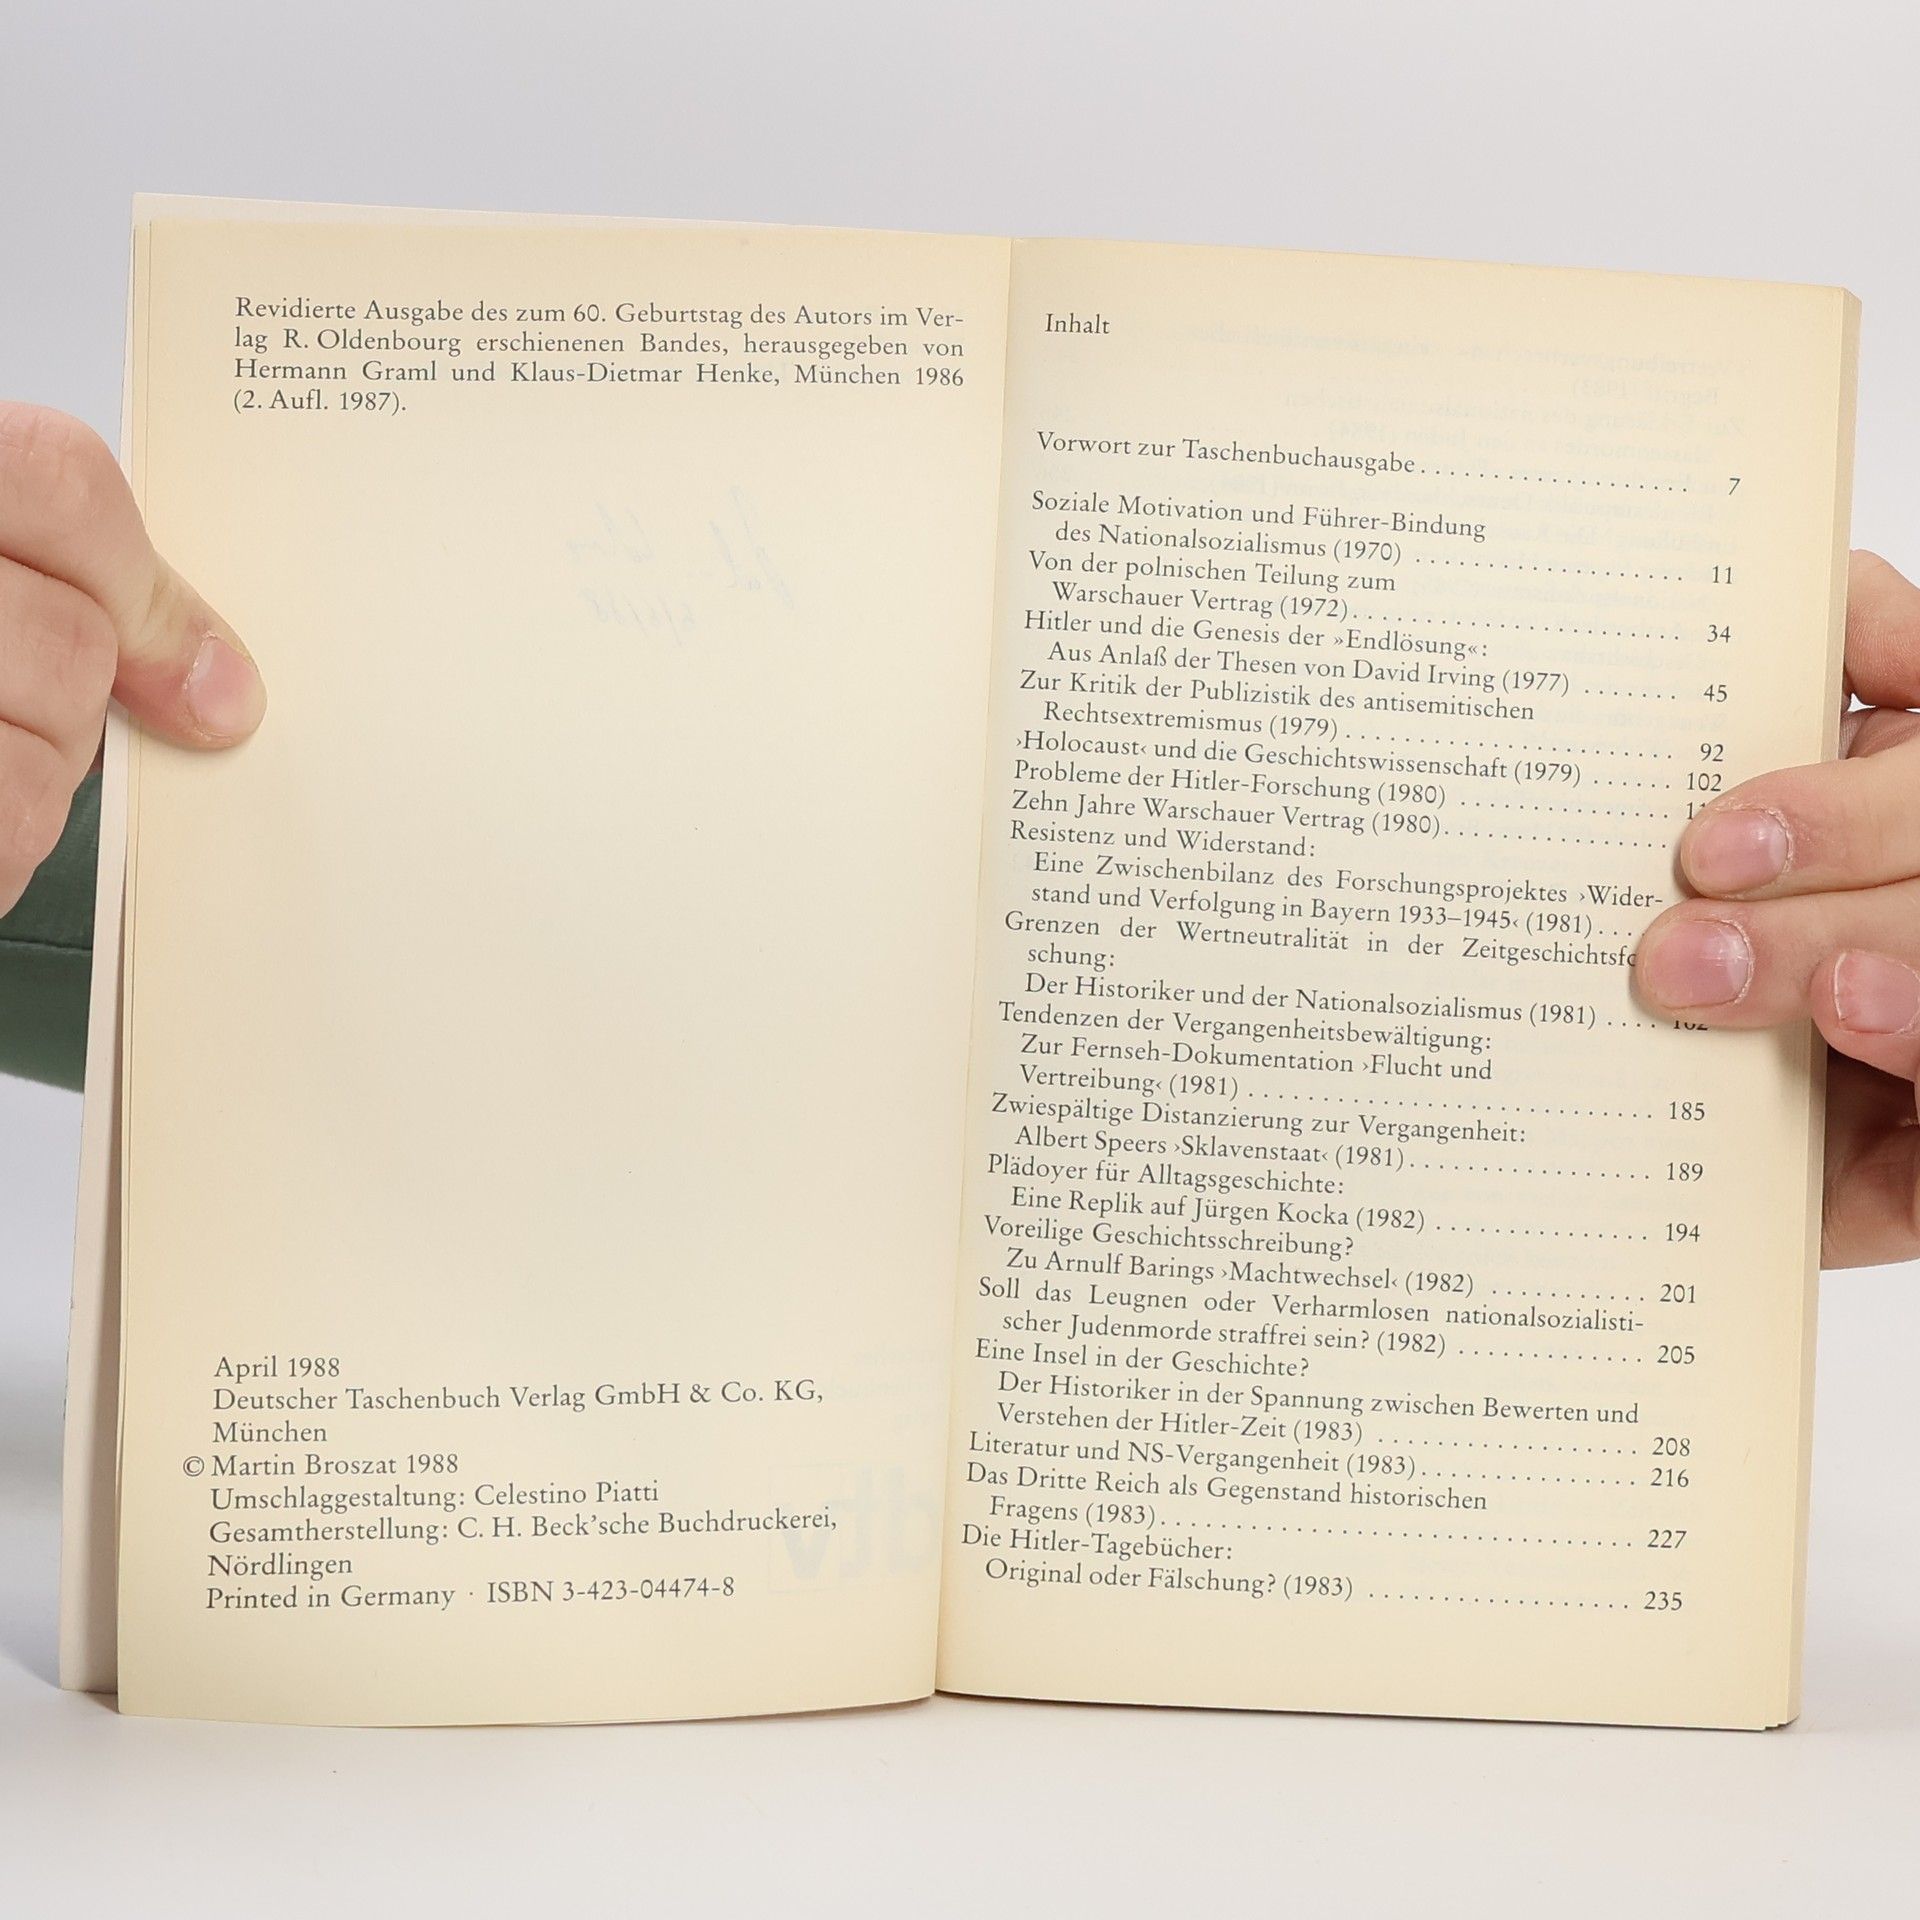 Revidierte Ausgabe des zum 60. Geburtstag des Autors im Ver-
lag R. Oldenbourg erschienenen Bandes, herausgegeben von
Hermann Graml und Klaus-Dietmar Henke, München 1986
(2. Aufl. 1987).
April 1988
Deutscher Taschenbuch Verlag GmbH & Co. KG,
München
© Martin Broszat 1988
Umschlaggestaltung: Celestino Piatti
Gesamtherstellung: C. H. Beck'sche Buchdruckerei,
Nördlingen
Printed in Germany · ISBN 3-423-04474-8
Inhalt
Vorwort zur Taschenbuchausgabe . . . . . . . . . . . . . . . . . . . 7
Soziale Motivation und Führer-Bindung
des Nationalsozialismus (1970) . . . . . . . . . . . . . . . . . . . 11
Von der polnischen Teilung zum
Warschauer Vertrag (1972) . . . . . . . . . . . . . . . . . . . . . . . 34
Hitler und die Genesis der »Endlösung«:
Aus Anlaß der Thesen von David Irving (1977) . . . . . . . 45
Zur Kritik der Publizistik des antisemitischen
Rechtsextremismus (1979) . . . . . . . . . . . . . . . . . . . . . . . 92
›Holocaust‹ und die Geschichtswissenschaft (1979) . . . . . . 102
Probleme der Hitler-Forschung (1980) . . . . . . . . . . . . . . .
Zehn Jahre Warschauer Vertrag (1980) . . . . . . . . . . . . . . . .
Resistenz und Widerstand:
Eine Zwischenbilanz des Forschungsprojektes ›Wider-
stand und Verfolgung in Bayern 1933–1945‹ (1981) . . . .
Grenzen der Wertneutralität in der
schung:
Der Historiker und der Nationalsozialismus (1981) . . . . 162
Tendenzen der Vergangenheitsbewältigung:
Zur Fernseh-Dokumentation ›Flucht und
Vertreibung‹ (1981) . . . . . . . . . . . . . . . . . . . . . . . . . . . . 185
Zwiespältige Distanzierung zur Vergangenheit:
Albert Speers ›Sklavenstaat‹ (1981) . . . . . . . . . . . . . . . . . 189
Plädoyer für Alltagsgeschichte:
Eine Replik auf Jürgen Kocka (1982) . . . . . . . . . . . . . . . 194
Voreilige Geschichtsschreibung?
Zu Arnulf Barings ›Machtwechsel‹ (1982) . . . . . . . . . . . 201
Soll das Leugnen oder Verharmlosen nationalsozialisti-
scher Judenmorde straffrei sein? (1982) . . . . . . . . . . . . . 205
Eine Insel in der Geschichte?
Der Historiker in der Spannung zwischen Bewerten und
Verstehen der Hitler-Zeit (1983) . . . . . . . . . . . . . . . . . . 208
Literatur und NS-Vergangenheit (1983) . . . . . . . . . . . . . . . 216
Das Dritte Reich als Gegenstand historischen
Fragens (1983) . . . . . . . . . . . . . . . . . . . . . . . . . . . . . . . . . 227
Die Hitler-Tagebücher:
Original oder Fälschung? (1983) . . . . . . . . . . . . . . . . . . 235